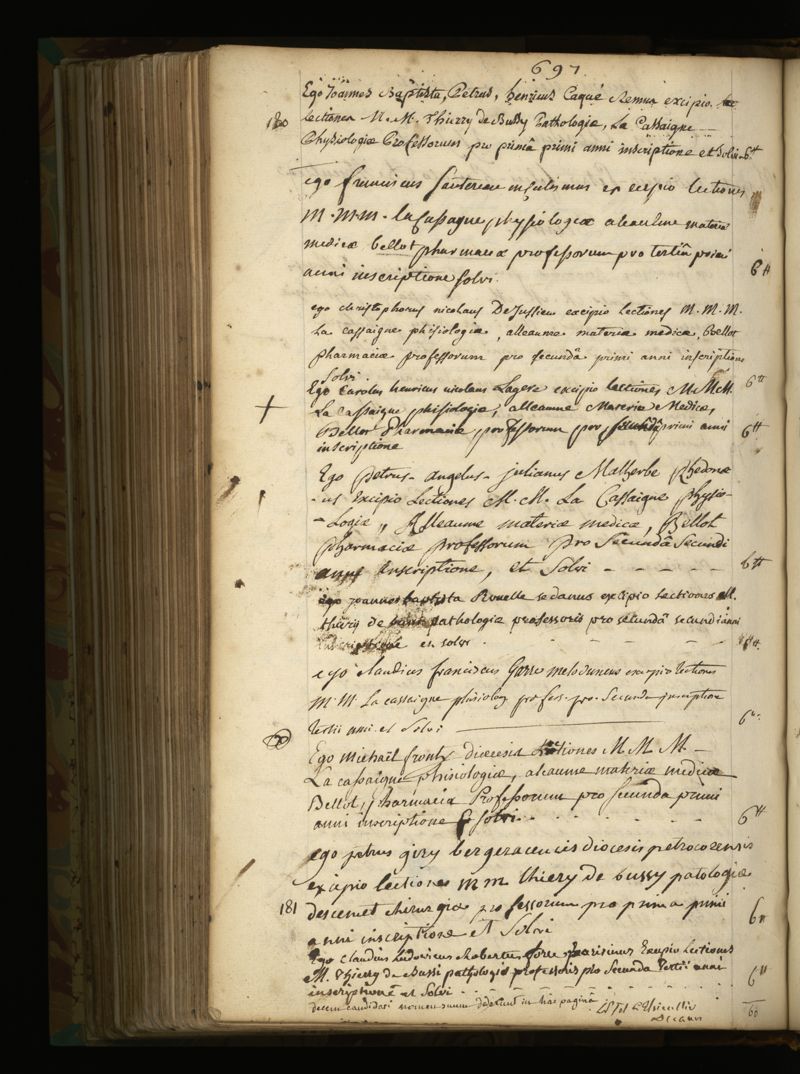 697.
Ego Joannes Baptista, Petrus, henricus Caqué Remus excipio
180
Lectiones M. M. Thierry de Bussy Pathologiæ, La Cassaigne
Physiologiæ Professorum pro primâ primi anni inscriptione et Solvi 6#
ego franciscus Sautereau excipio lectiones
M. M. M. lacassagne physiologiæ aleaulme materiæ
medicæ bellot pharmaciæ professorum pro tertiâ primi
anni inscriptione solvi. 6#
ego christophorus nicolaus DeJussieu excipio lectiones M. M. M.
La cassaigne phisiologiæ, alleaume materiæ medicæ, Bellot
pharmaciæ professorum pro secundâ primi anni inscriptione
Solvi. 6#
Ego Carolus henricus nicolaus Lagere excipio lectiones M. M. M.
La Cassaigne phisiologiæ, alleaume Materiæ Medicæ,
Bellot Pharmaciæ, professorum pro secundâ primi anni 6#
inscriptione
Ego petrus-angelus-julianus Malherbe Rhedonæ-
-us Excipio Lectiones M. M. La Cassaigne physio-
-Logiæ, Alleaume materiæ medicæ, Bellot
pharmaciæ professorum pro Secundâ Secundi
anni Inscriptione, et Solvi - - - - - 6#
Ego joannes baptista Rouelle sedanus excipio lectiones M.
thiery de pathologiæ professoris pro secundâ secundi anni
et solvi
ego claudius franciscus melodunus excipio lectiones
M. M. La cassaigne phisiolog profess. pro. Secunda inscriptione
tertii anni et Solvi 6#
Ego Michaël diœcesis Lectiones M. M. M. -
La cassaigne phisiologiæ, aleaume materiæ medicæ
Bellot, pharmacia Professorum pro secunda primi
anni inscriptione & solvi. 6#
ego petrus giry bergeracencis diocesis petrocorensis
excipio lectiones m m thiery de bussy patologiæ
181
descemet chirurgiæ professorum pro prima primi
anni inscriptione et Solvi 6#
Ego Claudius Ludovicus Robertus parisinus Excipio Lectiones
M. Thierry de Bussi pathologiæ professoris pro Secunda Tertii anni
inscriptione et Solvi 6#
decem candidati nomen suum dederunt in hac pagina
Decanus
60